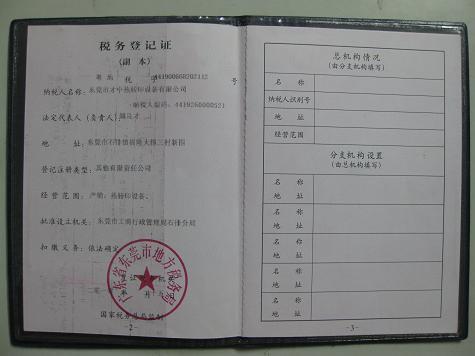 税务登记证
(副 本)
粤地 税 字 441900668202112 号
纳税人名称: 东莞市才中热转印设备有限公司
纳税人编码: 4419260000521
法定代表人(负责人)
地 址: 东莞市石排镇福隆大排三村新围
登记注册类型: 其他有限责任公司
经营范围: 产销: 热转印设备。
批准设立机关: 东莞市工商行政管理局石排分局
扣缴义务: 依法确定
广东省东莞市地方税务局
国家税务总局监制
-2-
总机构情况
(由分支机构填写)
名 称
纳税人识别号
地 址
经营范围
分支机构设置
(由总机构填写)
名 称
地 址
名 称
地 址
名 称
地 址
名 称
地 址
-3-